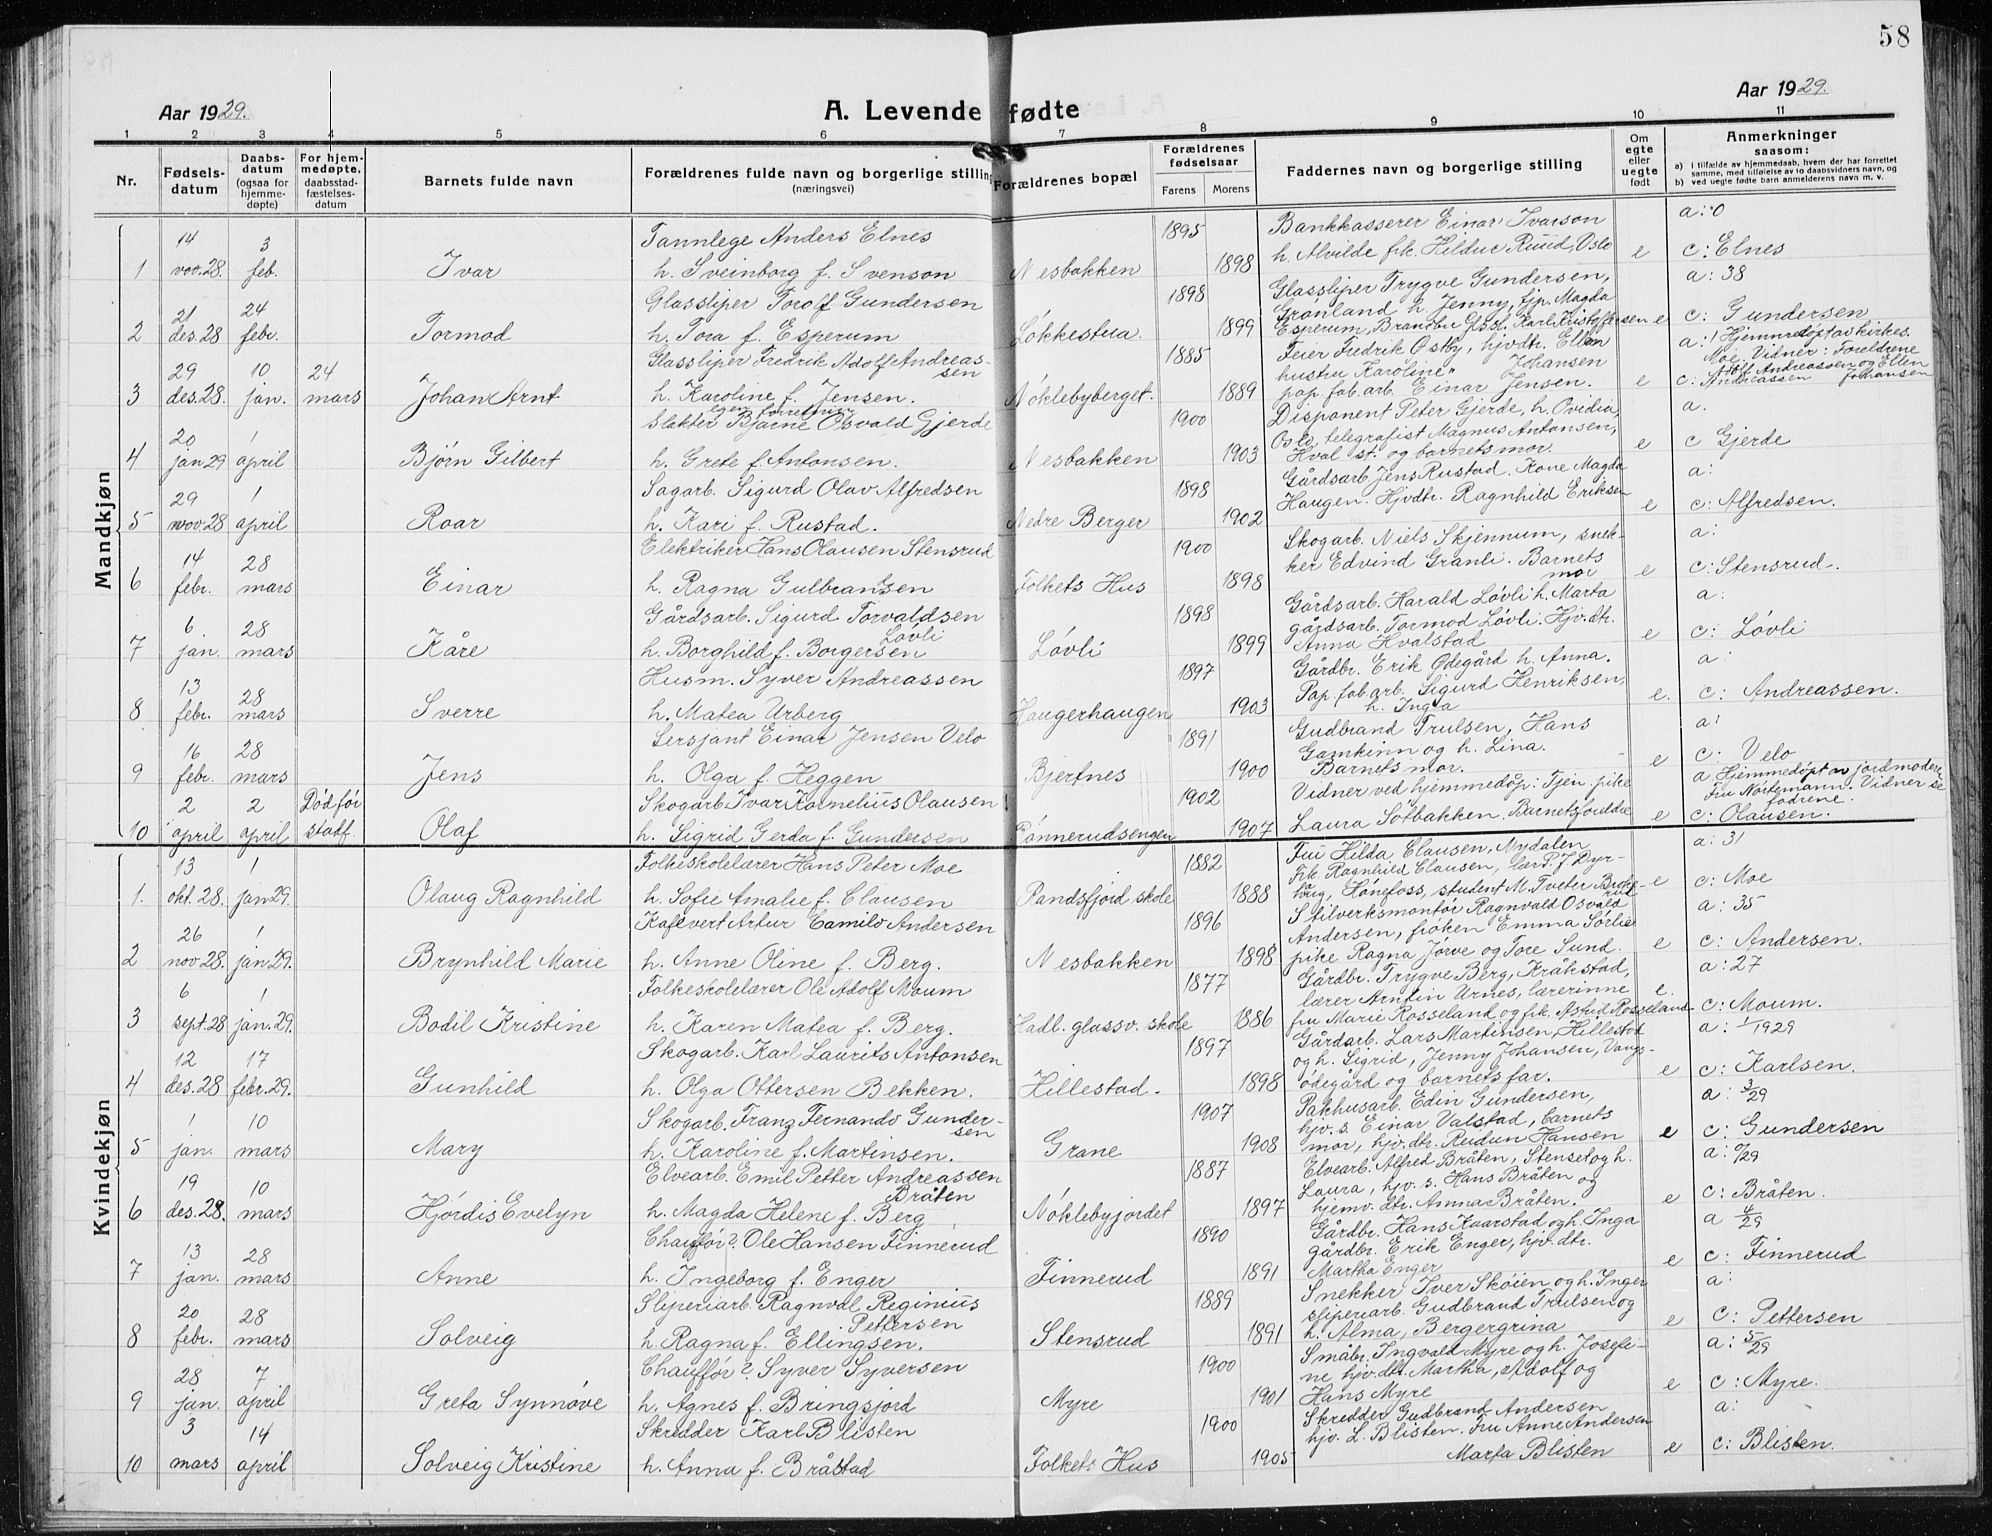 58
Aar 1929.
A. Levende fødte
Aar 1929.
1 2 3 4 5 6 7 8 9 10 11
Nr.
Fødsels-datum
Daabs-datum (ogsaa for hjemme-døpte)
For hjem-medøpte, daabsstad-fæstelses-datum
Barnets fulde navn
Forældrenes fulde navn og borgerlige stilling (næringsvei)
Forældrenes bopæl
Forældrenes fødselsaar
Farens Morens
Faddernes navn og borgerlige stilling
Om egte eller uegte født
Anmerkninger saasom:
a) i tilfælde av hjemmedaab, hvem der har forrettet samme, med tilføielse av to daabsvidners navn, og
b) ved uegte fødte barn anmelderens navn m. v.
Mandkjøn
14 3 Tannlege Anders Elnes 1895 Bankkasserer Einar Ivarson a: 0
1 nov. 28. feb. Ivar h. Sveinborg f. Svenson Nesbakken 1898 h. Alvilde frk. Hildur Ruud, Oslo e c: Elnes
21 24 Glassliper Torolf Gundersen 1898 Glassliper Trygve Gundersen, a: 38
Grønland h. Jenny, tjp. Magda
2 des. 28 febr. Tormod h. Tora f. Esperum Løkkestua. 1899 Esperum, Brandbu Glssl. Karl Kristoffersen e c: Gundersen
29 10 24 Glassliper Fredrik Adolf Andreas-sen 1885 Feier Fredrik Østby, hjvdtr. Ellen Johansen a: Hjemmedøpt av kirkes. Moe. Vidner: Foreldrene
hustru Karoline Adolf Andreassen og Ellen Johansen
3 des. 28. jan. mars Johan Arnt h. Karoline f. Jensen. Nøklebyberget. 1889 pap. fab. arb. Einar Jensen. e c: Andreassen
20 1 egen forretning
Slakter Bjarne Osvald Gjerde 1900 Disponent Peter Gjerde, h. Ovidia, a.
Oslo, telegrafist Magnus Antonsen,
4 jan 29 april Bjørn Gilbert h. Grete f. Antonsen. Nesbakken 1903 Hval st. og barnets mor. e c Gjerde
29 1 Sagarb. Sigurd Olav Alfredsen 1898 Gårdsarb. Jens Rustad. Kone Magda a:
5 nov. 28 april Roar h. Kari f. Rustad. Nedre Berger 1902 Haugen. Hjvdtr. Ragnhild Eriksen e c: Alfredsen.
14 28 Elektriker Hans Olausen Stensrud 1900 Skogarb. Niels Skjennum, snek- a:
6 febr. mars Einar h. Ragna Gulbrandsen Folkets Hus 1898 ker Edvind Granli. Barnets mor e c: Stensrud.
6 28 Gårdsarb. Sigurd Torvaldsen Løvli 1898 Gårdsarb. Harald Løvli h. Marta a:
gårdsarb. Tormod Løvli. Hjv. dtr.
7 jan. mars Kåre h. Borghild f. Borgersen Løvli 1899 Anna Hvalstad e c: Løvli
13 28 Husm. Syver Andreassen 1897 Gårdbr. Erik Ødegård h. Anna. a:
8 febr. mars Sverre h. Matea Urberg Haugerhaugen 1903 Pap. fab. arb. Sigurd Henriksen, h. Inga e. c: Andreassen.
16 28 Sersjant Einar Jensen Velo 1891 Gudbrand Trulsen, Hans a:
Gamkinn og h. Lina.
9 febr. mars Jens h. Olga f. Heggen Bjertnes 1900 Barnets mor. e c: Velo
2 2 Død før Skogarb. Ivar Kornelius Olausen 1902 Vidner ved hjemmedøp: Tjen. pike a Hjemmedøpt av jordmoder Fru Nortemann. Vidner se fadrene.
10 april april stadf. Olaf h. Sigrid Gerda f. Gundersen Rønnerudsengen 1907 Laura Sotbakken. Barnets foreldre e c: Olausen.
Kvindekjøn
13 1 Folkeskolelærer Hans Peter Moe 1882 Fru Hilda Clausen, Nydalen a: 31
frk. Ragnhild Clausen, lær P. J Dyr-
1. okt. 28. jan 29. Olaug Ragnhild h. Sofie Amalie f. Clausen Randsfjord skole 1888 haug, Hønefoss, student M. Tveter e c: Moe
26 1 Kafévert Artur Camilo Andersen 1896 Stilverksmontør Ragnvald Osvald a: 35
Andersen, frøken Emma Sørlie
2 nov 28. jan 29. Brynhild Marie h. Anne Oline f. Berg. Nesbakken 1898 pike Ragna Jørve og Tore Sund. e c: Andersen.
6 1 Folkeskolelærer Ole Adolf Moum 1877 Gårdbr. Trygve Berg, Kråkstad, a: 27
lærer Arnfin Urnes, lærerinne
3 sept. 28 jan. 29. Bodil Kristine h. Karen Matea f. Berg. Hadl. glassv. skole 1886 fru Marie Rosseland og frk. Astrid Rosseland e. c: Moum.
12 17 Skogarb. Karl Laurits Antonsen 1897 Gårdarb. Lars Martinsen, Hillestad a: 1/1929
og h. Sigrid, Jenny Johansen, Vangs-
4 des. 28 febr. 29. Gunhild h. Olga Ottersen Bekken. Hillestad. 1898 ødegård og barnets far. e c: Karlsen.
1 10 Skogarb. Franz Fernando Gunder-sen 1907 Pakhusarb. Edin Gundersen, a: 3/29
hjv. s. Einar Valstad, barnets
5 jan. mars Mary h. Karoline f. Martinsen. Grane 1908 mor, hjv. dtr. Rudun Hansen e c: Gundersen
19 10 Elvearb. Emil Petter Andreassen Bråten 1887 Elvearb. Alfred Bråten, Stenset og h. a: 0/29
Laura, hjv. s. Hans Bråten og
6 des. 28. mars Hjørdis Evelyn h. Magda Helene f. Berg Nøklebyjordet 1897 hjemv. dtr. Anna Bråten. e c: Bråten.
13 28 Chauffør? Ole Hansen Finnerud 1890 Gårdbr. Hans Kaarstad og h. Inga a 4/29
gårdbr. Erik Enger, hjv. dtr.
7 jan. mars Anne h. Ingeborg f. Enger Finnerud 1891 Martha Enger e c: Finnerud
20 28 Sliperiarb. Ragnval Reginius Pettersen 1889 Snekker Iver Skøien og h. Inger a:
sliperiarb. Gudbrand Trulsen og
8 febr. mars Solveig h. Ragna f. Ellingsen. Stensrud 1891 h. Alma, Bergergrina e c: Pettersen
28 7 Chauffør? Syver Syversen 1900 Småbr. Ingvald Myre og h. Josefi- a: 5/29
ne hjv. dtr. Martha, Adolf og
9 jan. april Greta Synnøve h. Agnes f. Bringsjord Myre 1901 Hans Myre e c: Myre.
3 14 Skredder Karl Blisten 1900 Skredder Gudbrand Andersen a:
hjv. L. Blisten. Fru Anne Andersen
10 mars april Solveig Kristine h. Anna f. Bråstad Folkets Hus 1905 Marta Blisten e c: Blisten.